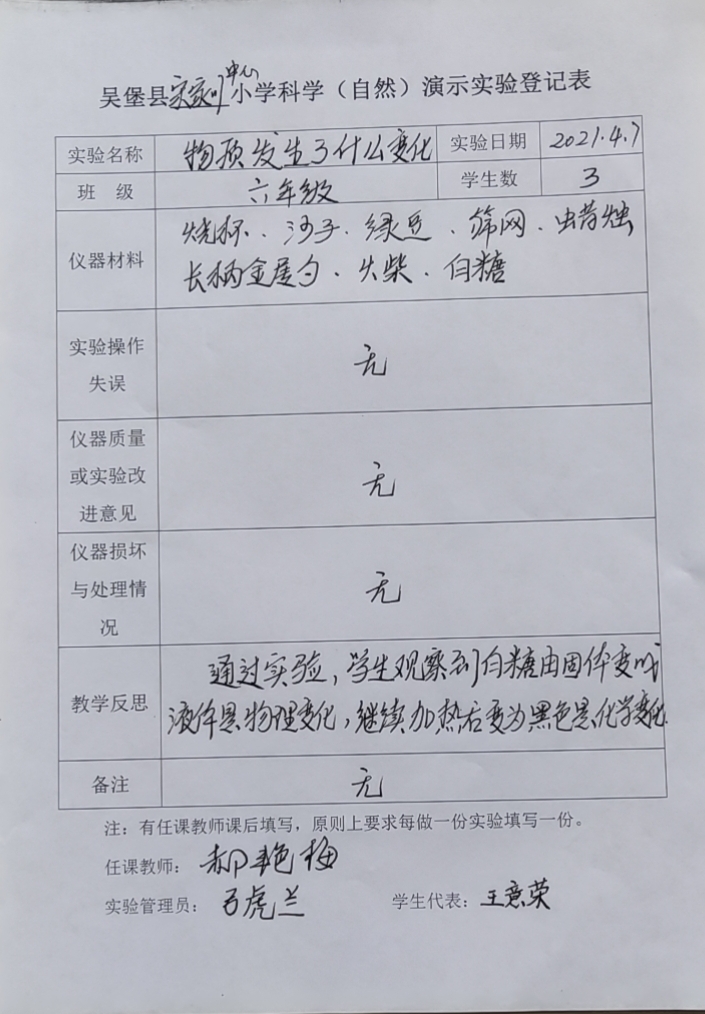 吴堡县宋家川中心小学科学（自然）演示实验登记表
实验名称 物质发生了什么变化 实验日期 2021.4.7
班 级 六年级 学生数 3
仪器材料 烧杯、沙子、绿豆、筛网、蜡烛
长柄金属勺、火柴、白糖
实验操作
失误
无
仪器质量
或实验改
进意见
无
仪器损坏
与处理情
况
无
教学反思
通过实验，学生观察到白糖由固体变成
液体是物理变化，继续加热后变为黑色是化学变化.
备注 无
注：有任课教师课后填写，原则上要求每做一份实验填写一份。
任课教师：郝艳梅
实验管理员：弓虎兰 学生代表：王意荣